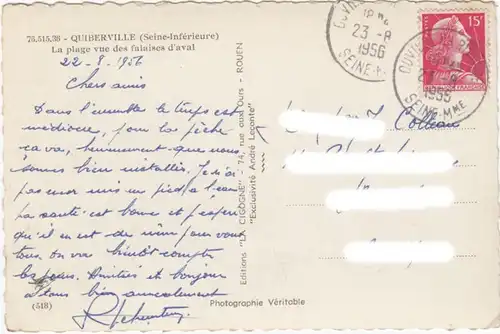 76.515.38 - QUIBERVILLE (Seine-Inférieure)
La plage vue des falaises d'aval
22-8-1956
Chers amis
Dans l'ensemble le temps est
médiocre, pour la pêche
ça va, heureusement que nous
sommes bien installés. Je n'ai
pas encore mis un pied à l'eau
ma santé est bonne et j'espère
qu'il en est de même pour vous
tous, on va bientôt compter
les jours. Amitiés et bonjour
à tous bien amicalement
(518)
Editions "LA CIGOGNE" - 74, rue aux Ours - ROUEN
"Exclusivité André Leconte"
Photographie Véritable
OUVI
23 -8
1956
SEINE-M
15F
OUVI
23 -8
SEINE-MME